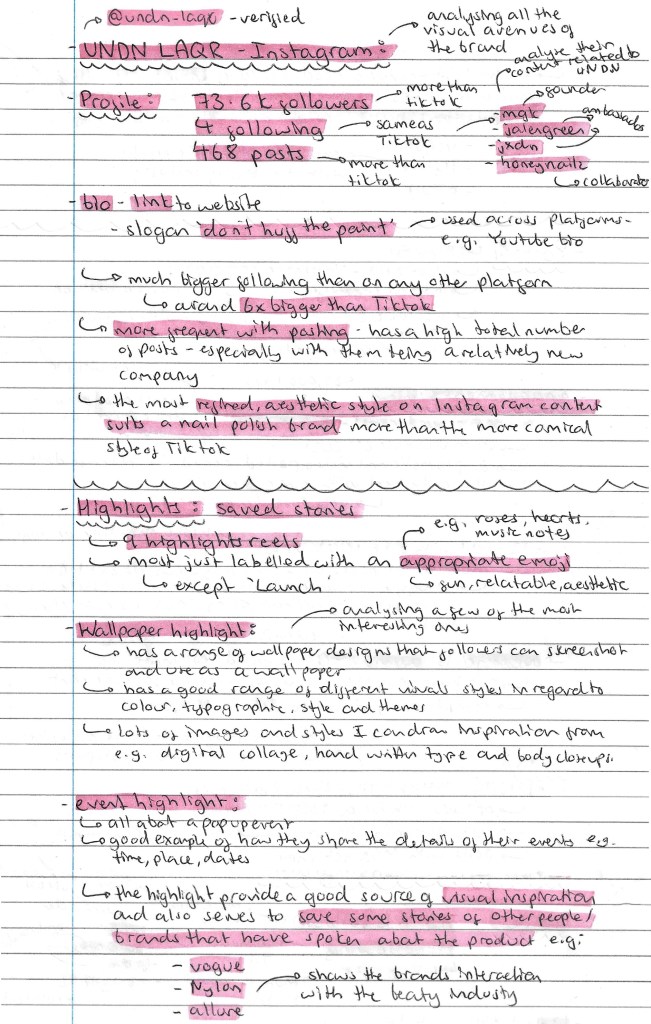 @undn-laqr - verified
analysing all the
visual avenues of
the brand
- UNDN LAQR - Instagram:
analyse their
content related to
UNDN
- Profile: 73.6k followers
more than
tiktok
4 following
same as
Tiktok
468 posts
more than
tiktok
- mgk
founder
- jalengreen
ambassados
- jxdn
- honeynailz
collaborator
- bio - link to website
- slogan 'don't huff the paint'
used across platforms -
e.g. Youtube bio
much bigger following than on any other platform
around 6x bigger than Tiktok
more frequent with posting - has a high total number
of posts - especially with them being a relatively new
company
the most refined, aesthetic style on Instagram content
suits a nail polish brand more than the more comical
style of Tiktok
- Highlights: saved stories
9 highlights reels
e.g. roses, hearts,
music notes
most just labelled with an appropriate emoji
except 'Launch'
fun, relatable, aesthetic
analysing a few of the most
interesting ones
- Wallpaper highlight:
has a range of wallpaper designs that followers can screenshot
and use as a wallpaper
has a good range of different visuals styles in regard to
colour, typographic, style and themes
lots of images and styles I can draw inspiration from
e.g. digital collage, hand written type and body closeups.
- event highlight:
all about a popup event
good example of how they share the details of their events e.g.
time, place, dates
the highlight provide a good source of visual inspiration
and also serves to save some stories of other people/
brands that have spoken about the product e.g:
- vogue
- Nylon
- allure
shows the brands interaction
with the beauty industry